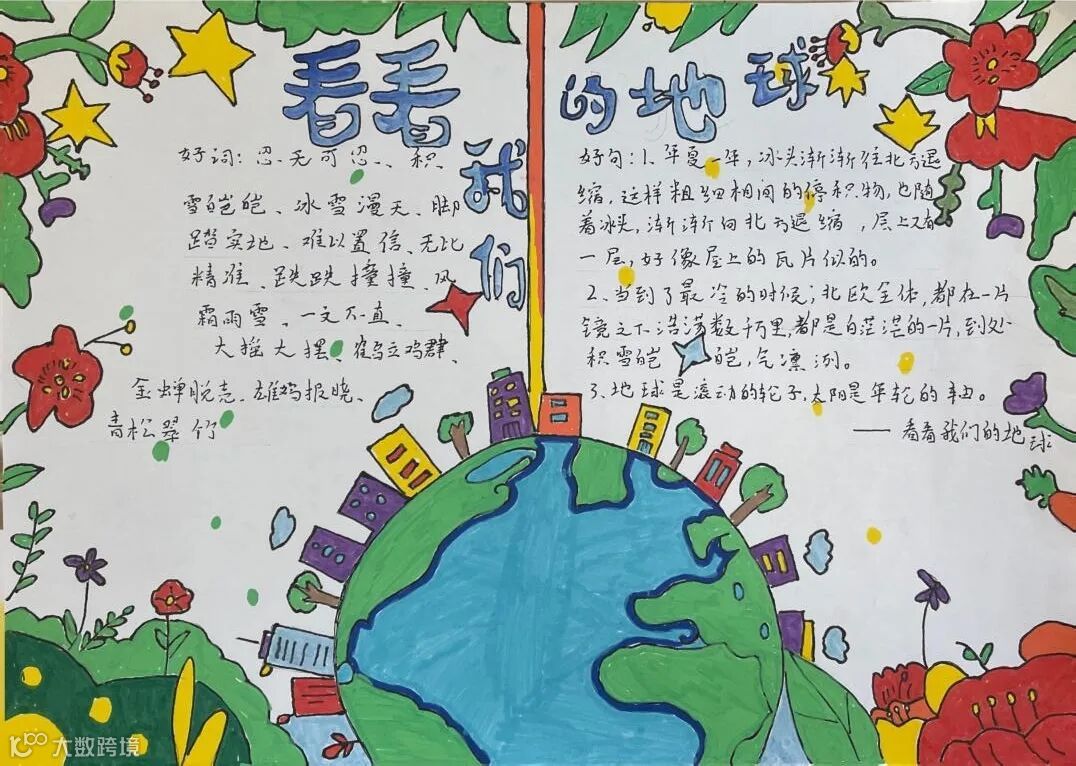 看看我们的地球
好词：忍无可忍、积
雪皑皑、冰雪漫天、脚
踏实地、难以置信、无比
精准、跌跌撞撞、风
霜雨雪、一文不直、
大摇大摆、鹤立鸡群、
金蝉脱壳、雄鸡报晓、
青松翠竹
好句：1、年复一年，冰头渐渐往北方退
缩，这样粗细相间的停积物，也随
着冰头，渐渐向北方退缩，层上又有
一层，好像屋上的瓦片似的。
2、当到了最冷的时候；北欧全体，都在一片
镜之下浩荡数千万里，都是白茫茫的一片，到处
积雪皑皑，气凛冽。
3、地球是滚动的轮子，太阳是年轮的
——看看我们的地球
大数跨境